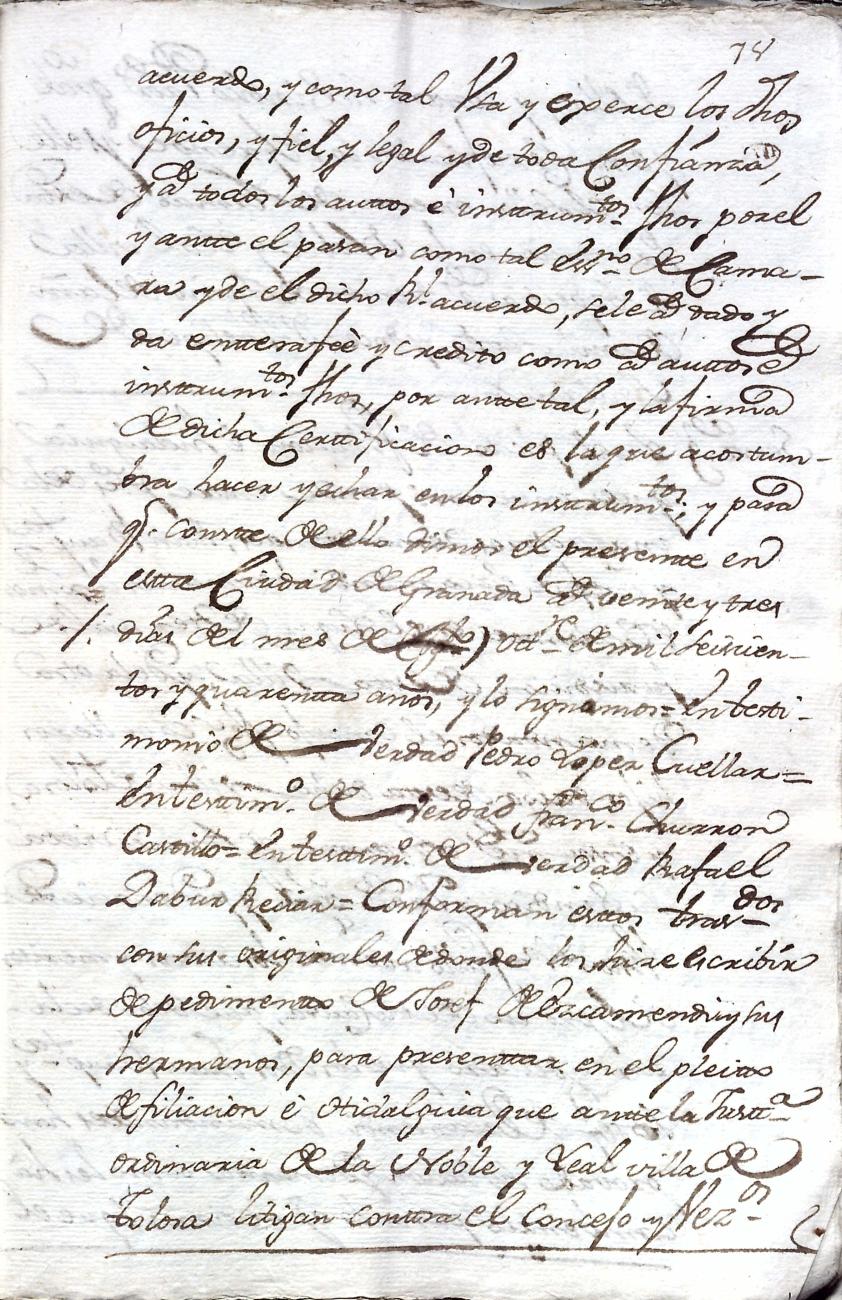 78
acuerdo, y como tal Usa y exerce los dhos
oficios, y fiel, y legal y de toda Confianza,
y â todos los auttos è insttrum.tos fhos por el
y antte el pasan como tal Ess.no de Cama-
ra y de el dicho Rl. acuerdo, se le â dado y
da entterafeè y credito como â auttos è
insttrum.tos fhos, por antte tal, y la firma
de dicha Certtificacion es la que acostum-
bra hacer y echar en los insttrum.tos, y para
q.e constte de ello dimos el presentte en
estta Ciudad de Granada â veinte y tres
dias del mes de Ott.e de mil seiscien-
tos y quarentta años, y lo signamos= En testi-
monio de verdad Pedro Lopez Cuellar=
En testtim.o de verdad Fran.co Churron
Castillo= En testtim.o de verdad Rafael
Dabur Reciar= Conforman esttos tras.dos
con sus originales de donde los hize escribir
de pedimentto de Josef de Ezcamendi y sus
hermanos, para presenttar en el pleitto
de filiacion è Hidalguia que antte la Justt.a
ordinaria de la Noble y Leal villa de
Tolosa litigan conttra el Concejo y Vez.os